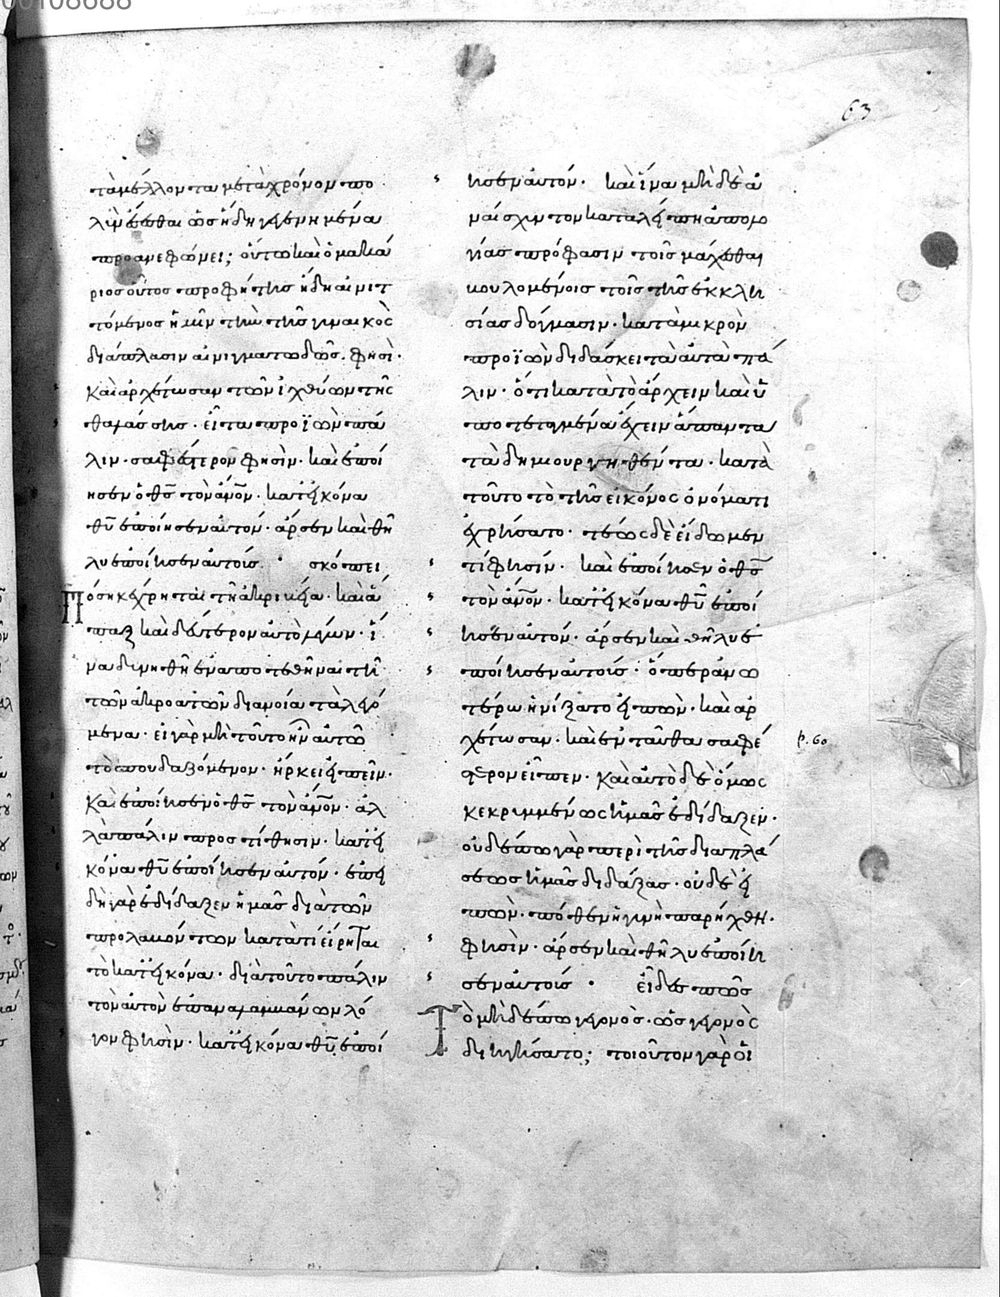 00108688
63
τὰ μέλλοντα μετὰ χρόνον πο
λὺν ἔσεσθαι ὡς ἤδη γεγενημένα
προανεφώνει; οὕτω καὶ ὁ μακά
ριος οὗτος προφήτης ἤδη αἰνιτ
τόμενος ἡμῖν τὴν τῆς γυναικὸς
διάπλασιν αἰνιγματωδῶς. φησὶ·
Καὶ ἀρχέτωσαν τῶν ἰχθύων τῆς
θαλάσσης· εἶτα προϊὼν πά
λιν· σαφέστερον φησὶν· καὶ ἐποί
ησεν ὁ θς τὸν ἄνον· κατ εἰκόνα
θυ ἐποίησεν αὐτόν· ἄρσεν καὶ θῆ
λυ ἐποίησεν αὐτούς· σκόπει
Πόση κέχρηται τῇ ἀκριβείᾳ· καὶ ἅ
παξ καὶ δεύτερον αὐτὸ λέγων· ἵ
να δυνηθῇ ἐναποτεθῆναι τῇ
τῶν ἀκροατῶν διανοίᾳ τὰ λεγό
μενα· εἰ γὰρ μὴ τοῦτο ἦν αὐτῶ
τὸ σπουδαζόμενον· ἤρκει εἰπεῖν·
Καὶ ἐποίησεν ὁ θς τὸν ἄνον· ἀλ
λὰ πάλιν προστίθησιν· κατ εἰ
κόνα θυ ἐποίησεν αὐτόν· ἐπει
δὴ γὰρ ἐδίδαξεν ἡμᾶς διὰ τῶν
προλαβόντων κατὰ τί εἴρηται
τὸ κατ εἰκόνα· διὰ τοῦτο πάλιν
τὸν αὐτὸν ἐπαναλαμβάνων λό
γον φησὶν· κατ εἰκόνα θυ ἐποί
ησεν αὐτόν· καὶ ἵνα μὴ δὲ ἀ
ναίσχυντον καταλείπῃ ἀπολο
γίας πρόφασιν τοῖς μάχεσθαι
βουλομένοις τοῖς τῆς ἐκκλη
σίας δόγμασιν· κατὰ μικρὸν
προϊὼν διδάσκει τὰ αὐτὰ πά
λιν· ὅτι κατὰ τὸ ἄρχειν καὶ ὑ
ποτεταγμένα ἔχειν ἅπαντα
τὰ δημιουργηθέντα· κατὰ
τοῦτο τὸ τῆς εἰκόνος ὀνόματι
ἐχρήσατο· τέως δὲ εἴδωμεν
τί φησιν· καὶ ἐποίησεν ὁ θς
τὸν ἄνον· κατ εἰκόνα θυ ἐποί
ησεν αὐτόν· ἄρσεν καὶ θῆλυ ἐ
ποίησεν αὐτούς· ὅπερ ἀνω
τέρω ἠνίξατο εἰπὼν· καὶ ἀρ
χέτωσαν· καὶ ἐνταῦθα σαφέ
p. 60
στερον εἶπεν· καὶ αὐτὸ δὲ ὅμως
κεκρυμμένως ἡμᾶς ἐδίδαξεν·
οὐδέπω γὰρ περὶ τῆς διαπλά
σεως ἡμᾶς διδάξας· οὐδὲ εἰ
πὼν· πόθεν ἡ γυνὴ παρήχθη·
φησὶν· ἄρσεν καὶ θῆλυ ἐποίη
σεν αὐτούς· εἶδες πῶς
Τὸ μὴδέπω γεγονὸς· ὡς γεγονὸς
διηγήσατο; τοιοῦτον γὰρ οἱ